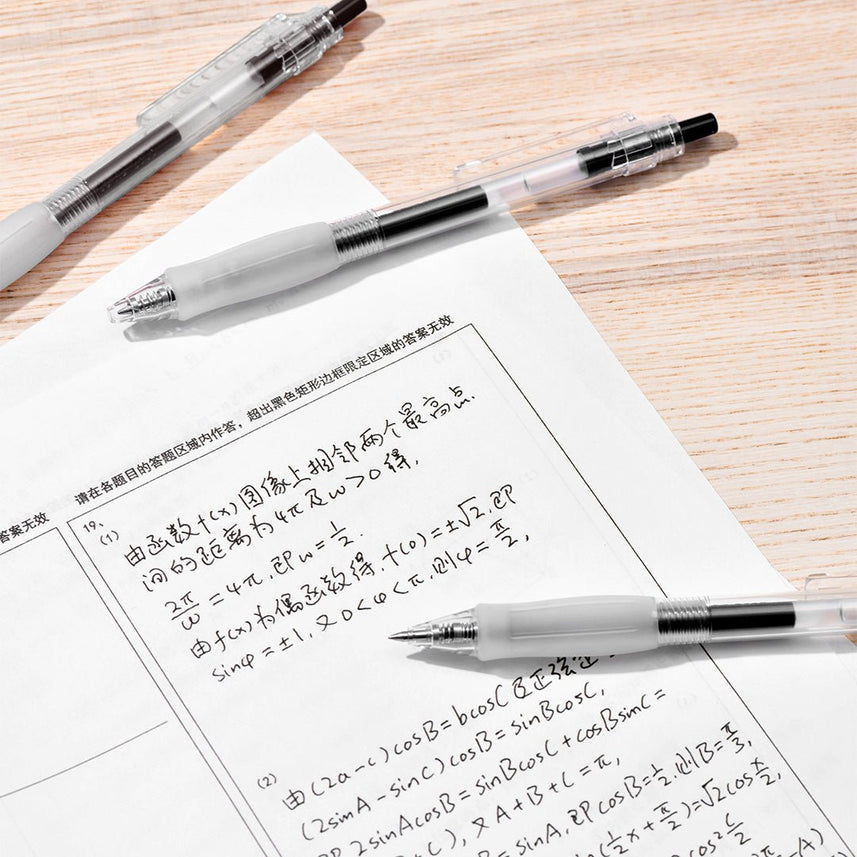 答案无效
请在各题目的答题区域内作答，超出黑色矩形边框限定区域的答案无效
19.
(1)
由函数f(x)图像上相邻两个最高点
间的距离为4π及ω>0得,
2π/ω=4π,即ω=1/2.
由f(x)为偶函数得,f(0)=±√2,即
sinφ=±1,又0<φ<π,则φ=π/2,
(2)
由(2a-c)cosB=bcosC及正弦定
(2sinA-sinC)cosB=sinBcosC,
2sinAcosB=sinBcosC+cosBsinC=
),又A+B+C=π,
=sinA,即cosB=1/2,则B=π/3,
(1/2x+π/2)=√2cosx/2,
cos²C/2
-A)